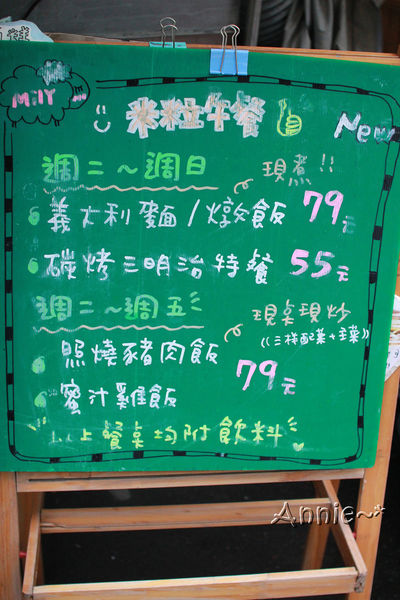 MilY
米粒午餐
New
週二～週日
現煮!!
義大利麵/燉飯 79元
碳烤三明治特餐 55元
週二～週五
現桌現炒
((三樣配菜+主菜))
照燒豬肉飯
79元
蜜汁雞飯
以上餐桌均附飲料
Annie~*